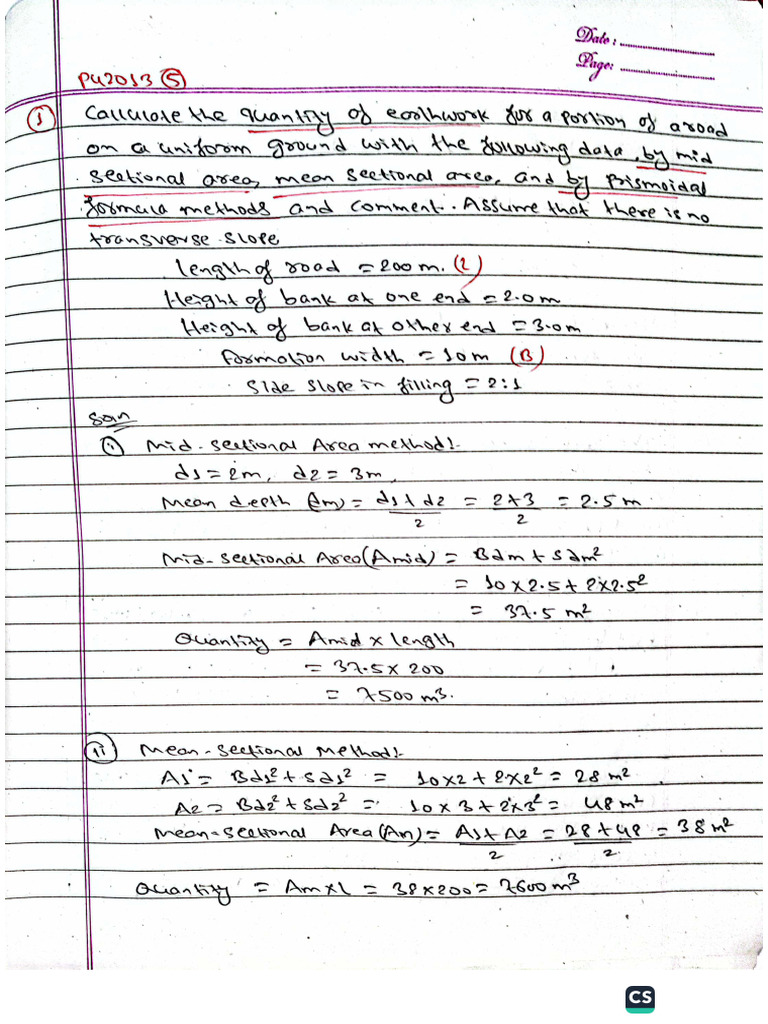 Date:
Page:
PU2013 (5)
(1) Calculate the quantity of earthwork for a portion of a road
on a uniform ground with the following data, by mid
sectional area, mean sectional area, and by Prismoidal
formula methods and comment. Assume that there is no
transverse slope
length of road = 200 m. (L)
Height of bank at one end = 2.0 m
Height of bank at other end = 3.0 m
formation width = 10 m (B)
Side slope in filling = 2:1
Soln
(i) Mid-sectional Area method:-
d1 = 2m, d2 = 3m,
Mean depth (dm) = (d1 + d2)/2 = (2+3)/2 = 2.5 m
Mid-sectional Area (Amid) = Bdm + Sdm²
= 10 x 2.5 + 2 x 2.5²
= 37.5 m²
Quantity = Amid x length
= 37.5 x 200
= 7500 m³.
(ii) Mean-sectional Method:-
A1 = Bd1² + Sd1² = 10x2 + 2x2² = 28 m²
A2 = Bd2² + Sd2² = 10 x 3 + 2x3² = 48 m²
Mean-Sectional Area (Am) = (A1 + A2)/2 = (28 + 48)/2 = 38 m²
Quantity = Am x L = 38 x 200 = 7600 m³
CS